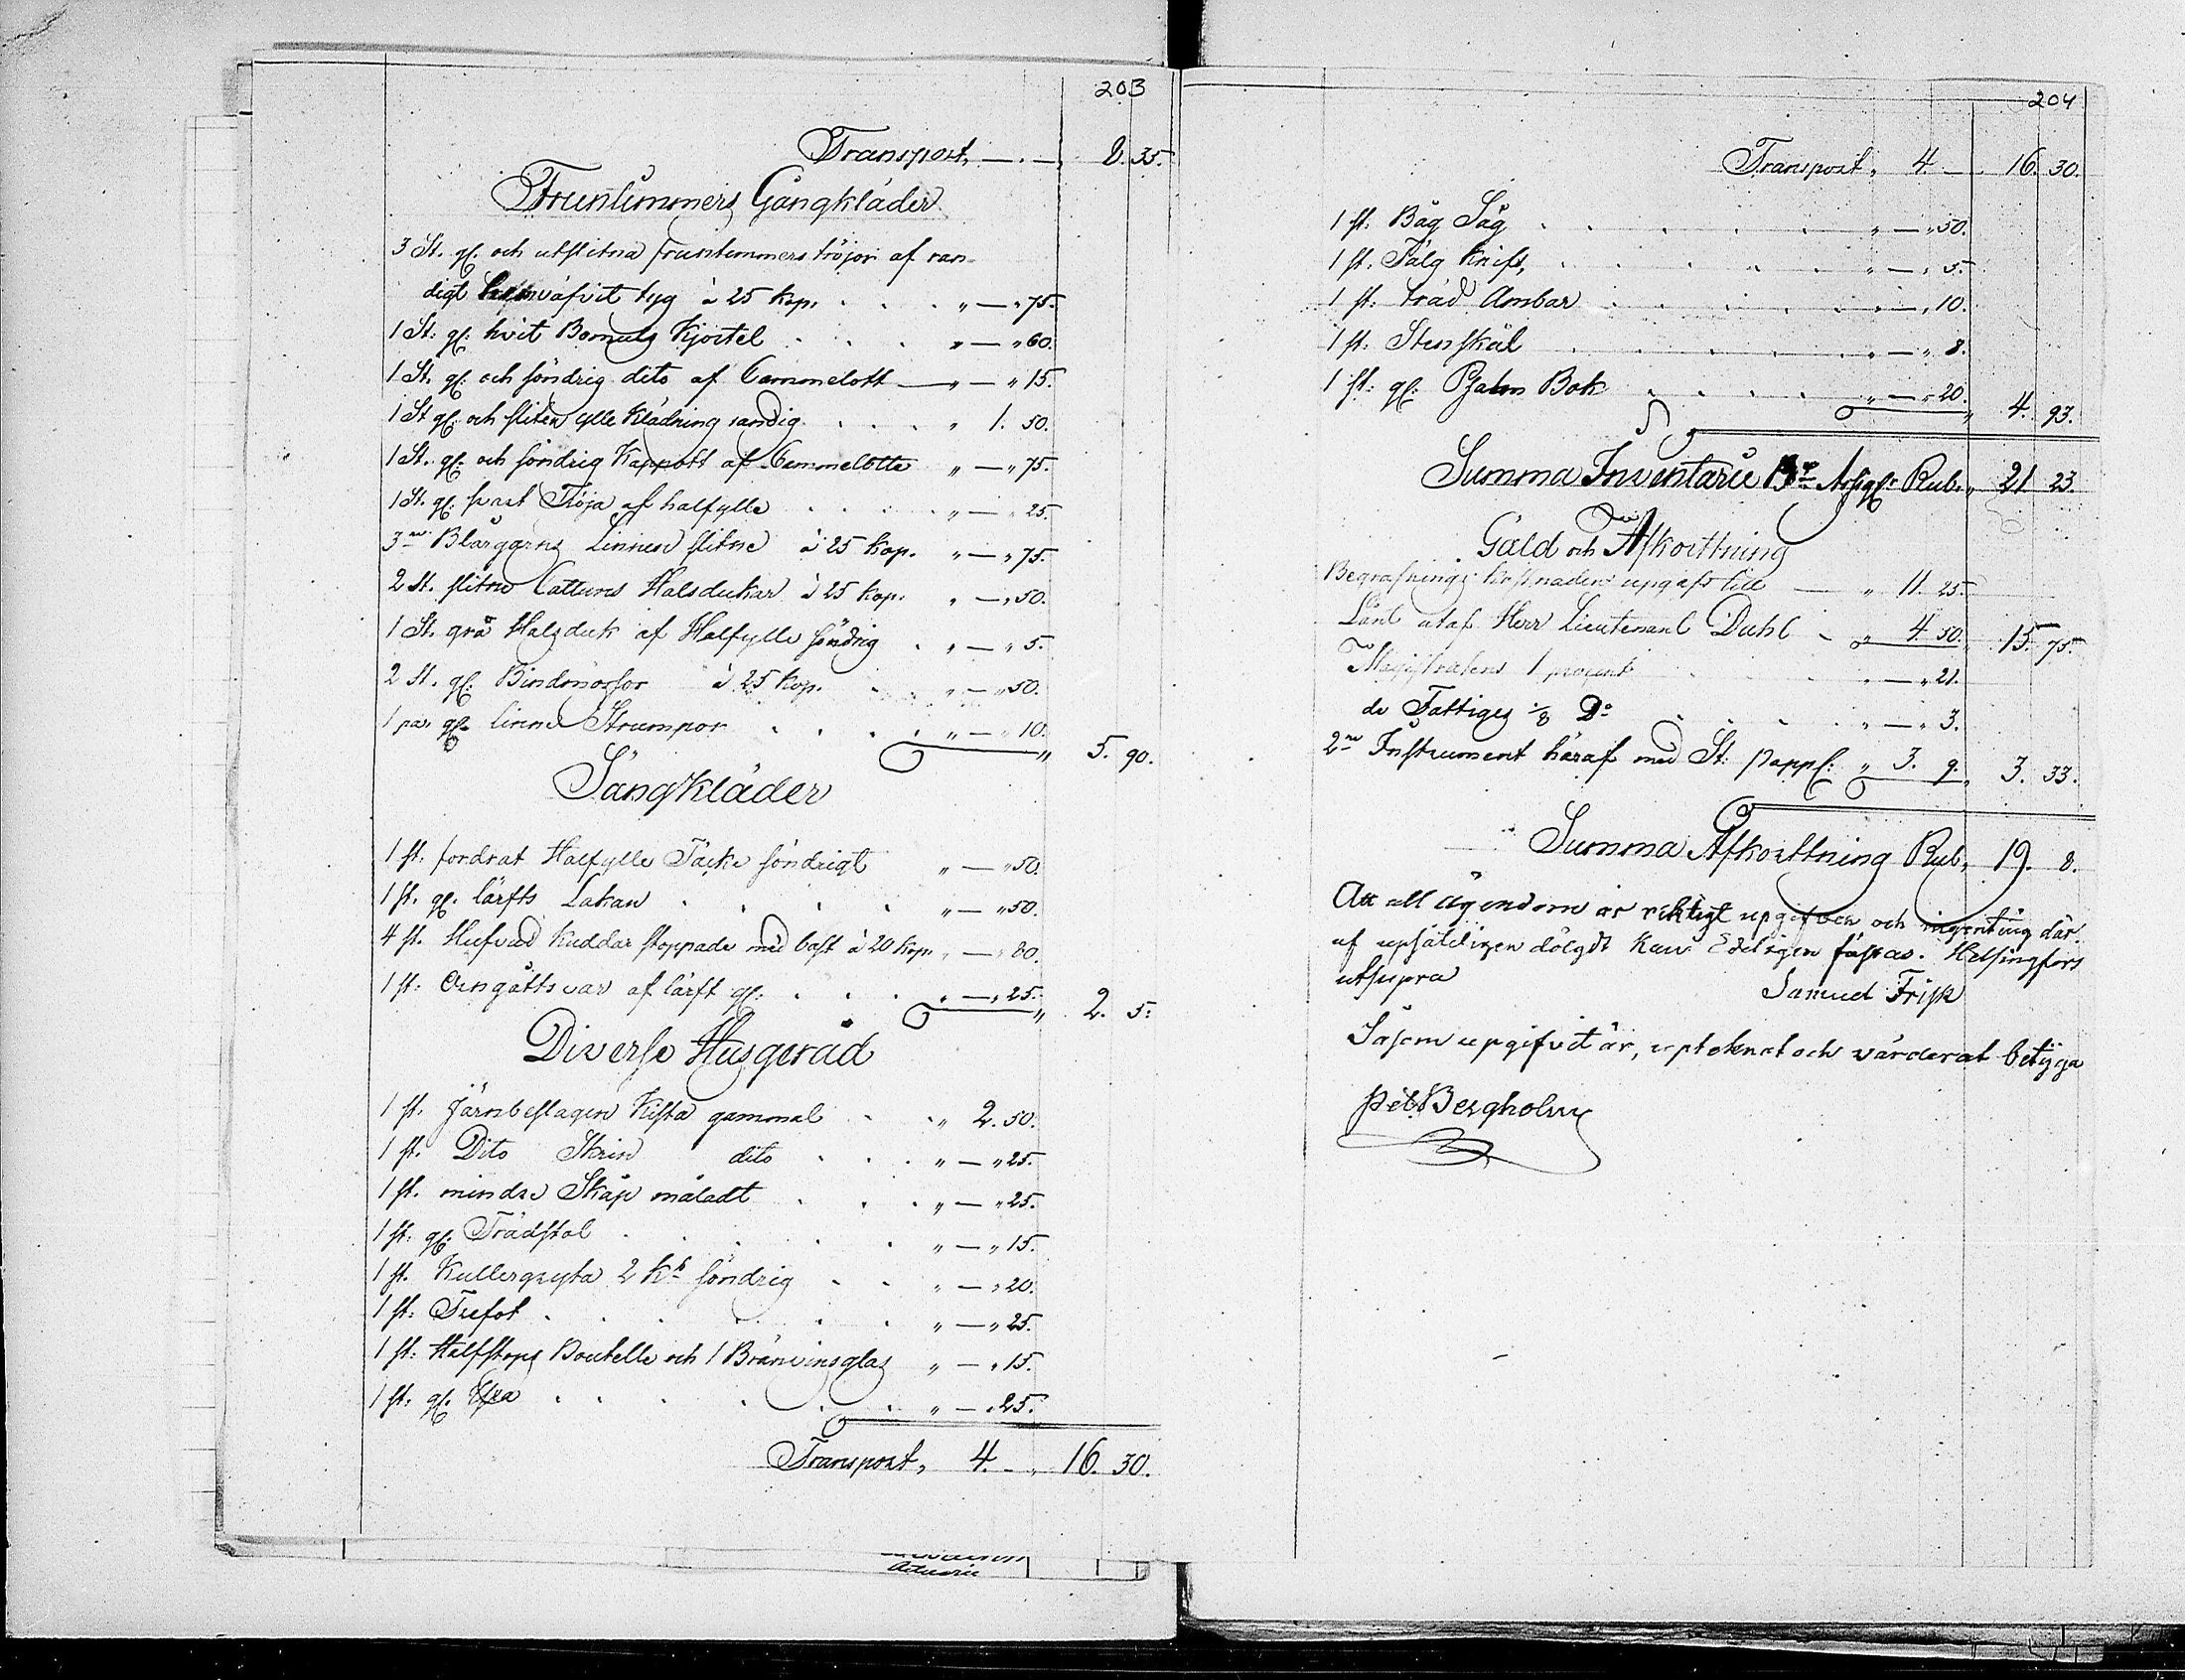 203
Transport, — . — „ 8. 35.
Fruntimmers Gångkläder
3 St. gl. och utslitna fruntimmers tröjor af ran-
digt hemväfvit tyg à 25 kop. . . . „ — „ 75.
1 St: gl: hvit Bomuls Kjortel . . . „ — „ 60.
1 St. gl: och söndrig dito af Cammelott — „ — „ 15.
1 St gl: och sliten ylle Klädning randig . . . „ 1. 50.
1 St. gl: och söndrig Kappott af Cammelotte „ — „ 75.
1 St. gl: svart Tröja af halfylle . . . „ — „ 25.
3ne Blårgarns Linnen slitne à 25 Kop. „ — „ 75.
2 St. slitne Cattuns Halsdukar à 25 kop. „ — „ 50.
1 St. grå Halsduk af Halfylle söndrig . „ — „ 5.
2 St. gl: Bindmössor à 25 kop. . . „ — „ 50.
1 par gl: linne Strumpor . . . . „ — „ 10.
„ 5. 90.
Sängkläder
1 st. fordrat Halfylle Täcke söndrigt „ — „ 50.
1 st. gl. lärfts Lakan . . . . „ — „ 50.
4 st. Hufvud Kuddar stoppade med bast à 20 kop. „ — „ 80.
1 st: Örngåttsvar af lärft gl: . . . „ — „ 25.
„ 2. 5.
Diverse Husgeråd
1 st. Järnbeslagen Kista gammal . . „ 2. 50.
1 st. Dito Skrin dito . . . „ — „ 25.
1 st. mindre Skåp måladt . . . „ — „ 25.
1 st: gl: Trädstol . . . . . „ — „ 15.
1 st. Kullergryta 2 ks söndrig . . „ — „ 20.
1 st: Trefot . . . . . „ — „ 25.
1 st: Halfstops Boutelle och 1 Bränvinsglas „ — „ 15.
1 st: gl. Yxa . . . . . . „ — „ 25.
Transport, 4. — „ 16. 30.
Actuarie
204
Transport „ 4. — . 16. 30.
1 st: Båg Såg . . . . . „ — „ 50.
1 st: Tälg Knif, . . . . . „ — „ 5.
1 st: träd Ämbar . . . . . „ — „ 10.
1 st: Stenskål . . . . . „ — „ 8.
1 st: gl: Psalm Bok . . . . „ — „ 20.
„ 4. 93.
Summa Inventarie Bco Assign: Rub. „ 21 23.
Gäld och Afkorttning
Begrafnings kostnaden upgafs till — „ 11. 25.
Lånt utaf Herr Lieutenant Dahl . „ 4. 50. 15. 75.
Magistratens 1 procent . . . . „ — „ 21.
de Fattiges 1/8 Do . . . . „ — „ 3.
2ne Instrument häraf med St: papp: „ 3. 9. „ 3. 33.
Summa Afkorttning Rub. 19. 8.
Att all ägendom är riktigt upgifven och ingenting där-
af upsåtligen dölgdt kan Edeligen fästas. Helsingfors
utsupra
Samuel Frisk
Såsom upgifvit är, upteknat och värderat betyga
Pet: Bergholm